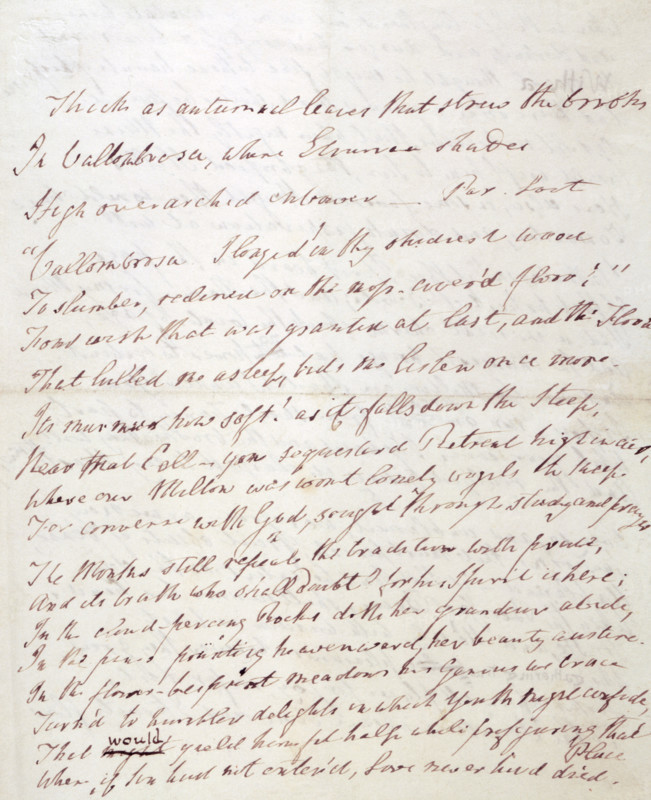 Thick as autumnal leaves that strew the brooks
In Vallombrosa, where Etrurian shades
High overarched embower — Par. Lost
"Vallombrosa I longed in thy shadiest wood
To slumber, reclined on the moss-cover'd floor!"
Fond wish that was granted at last, and the Flood
That lulled me asleep, bids me listen once more.
Its murmur how soft! as it falls down the Steep,
Near that Cell—yon sequesterd Retreat high in air,
Where our Milton was wont lonely vigils to keep
For converse with God, sought through study and prayer
The Monks still repeat the tradition with pride,
And its truth who shall doubt? for his Spirit is here;
In the cloud-piercing Rocks doth her grandeur abide,
In the pines pointing heavenward her beauty austere.
In the flower-besprent meadows his Genius we trace
Turn'd to humbler delights in which Youth might confide,
That would yield him fit help while prefiguring that
Place
Where, if Sin had not enter'd, Love never had died.